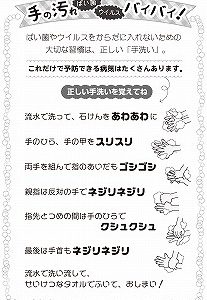 手の汚れ ばい菌 ウイルス バイバイ！
ばい菌やウイルスをからだに入れないための
大切な習慣は、正しい「手洗い」。
これだけで予防できる病気はたくさんあります。
正しい手洗いを覚えてね
流水で洗って、石けんをあわあわに
手のひら、手の甲をスリスリ
両手を組んで指のあいだもゴシゴシ
親指は反対の手でネジリネジリ
指先とつめの間は手のひらで
クシュクシュ
最後は手首もネジリネジリ
流水で洗い流して、
せいけつなタオルでふいて、おしまい！